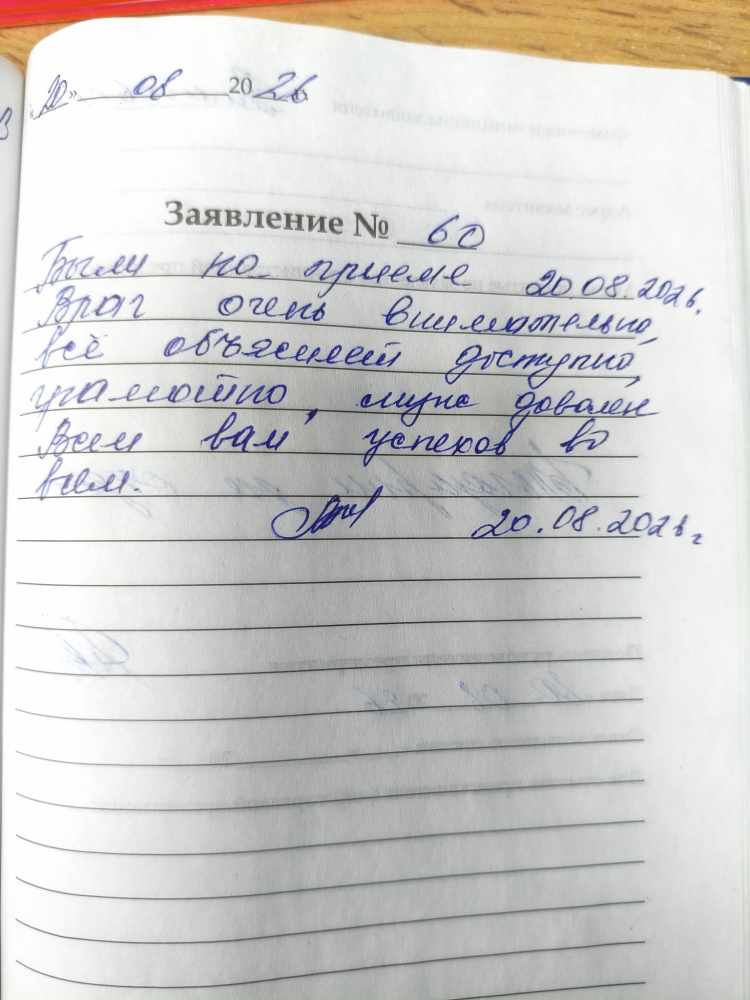 «20» 08 2026 г.
Заявление № 60
Были на приеме 20.08.2026.
Врач очень внимательно,
всё объясняет доступно,
грамотно, муж доволен
Всем вам успехов во
всем.
20.08.2026 г